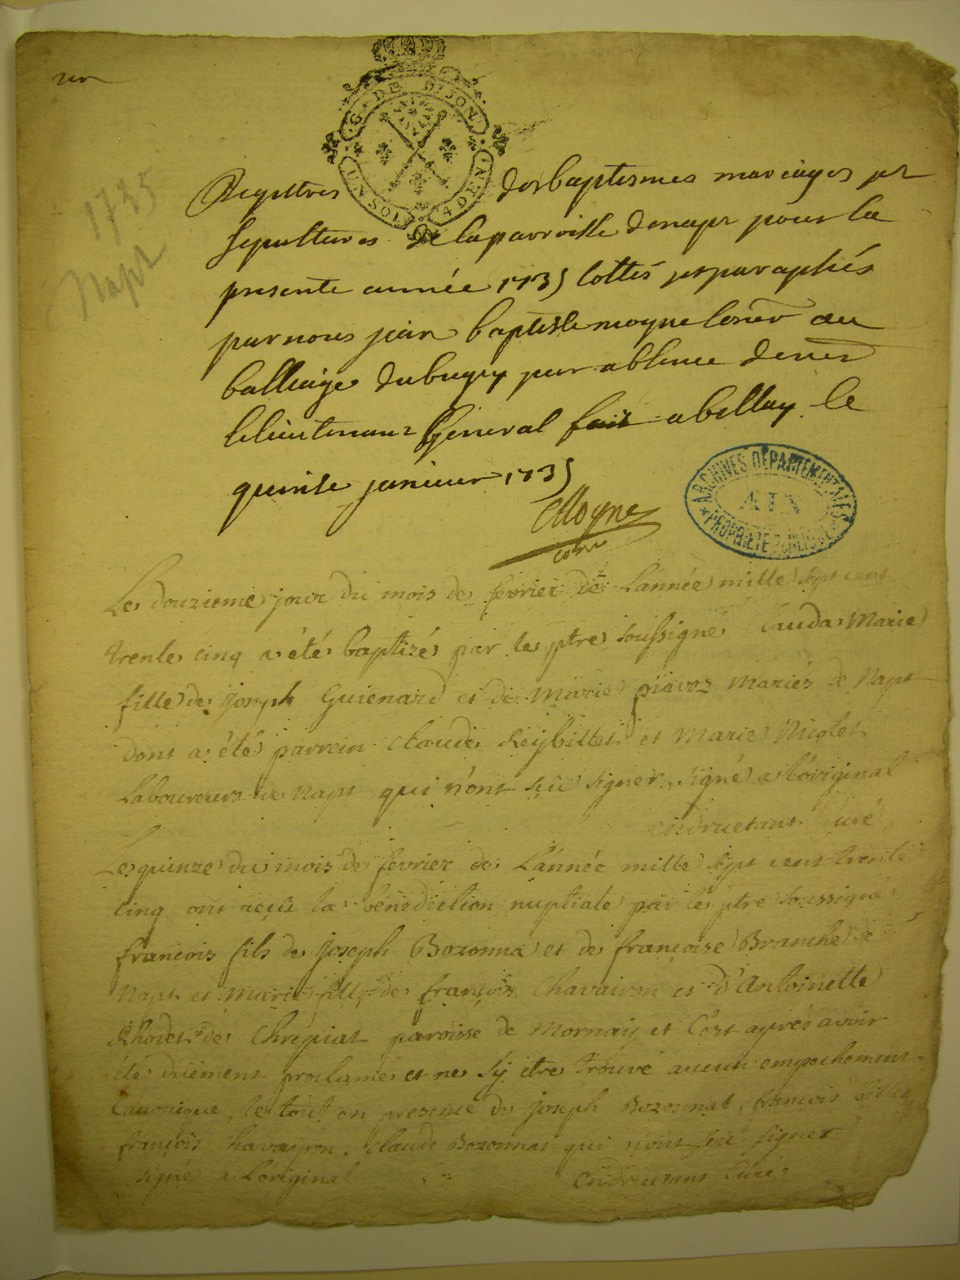 un
G. DE DIJON
UN SOL 4 DEN.
1735
Napt
Registres des baptesmes mariages et
sepultures de la parroisse de napt pour la
presente année 1735 cottés et paraphés
par nous jean baptiste moyne coner au
balliage du bugey pur absence de mr
le lieutenant General fait a bellay le
quinse janvier 1735
Moyne
coner
ARCHIVES DÉPARTEMENTALES
AIN
PROPRIÉTÉ PUBLIQUE
Le douzieme jour du mois de fevrier de L'année mille sept cent
trente cinq a été baptizé par le ptre soussigné Clauda Marie
fille de joseph Guienard et de Marie piavoz Mariés de Napt
dont a été parrein Claude Reybillet et Marie Nicolet
Laboureurs de Napt qui n'ont sçu signer, signé a l'original
Curé
Le quinze du mois de fevrier de L'année mille sept cent trente
cinq ont reçu la bénédiction nuptiale par le ptre soussigné
francois fils de Joseph Bozonnat et de françoise Branche de
Napt et Marie fille de françois Chavairon et d'Antoinette
Rhodet de Chrépiat paroisse de Mornay et C'est aprés avoir
été duement proclamé et ne s'y etre trouvé aucun empechement
Canonique, le tout en presence de Joseph Bozonnat, francois
françois Chavayron, Claude Bozonnat qui n'ont sçu signer
signé a L'original Curé